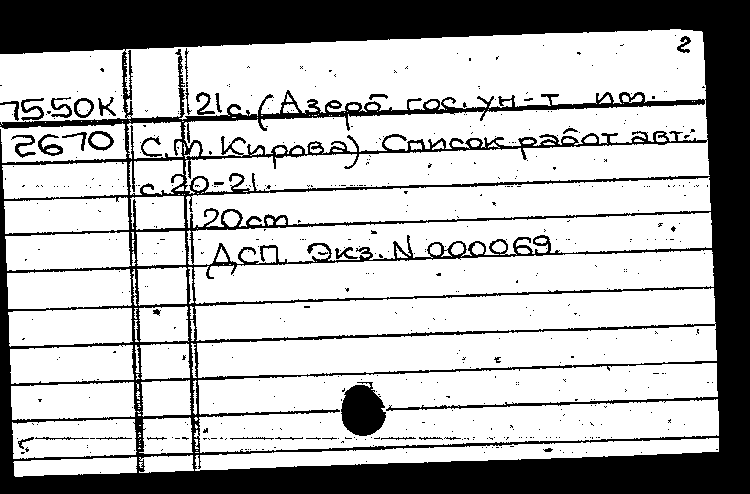 2
75.50К 21с. (Азерб. гос. ун-т им.
2670 С.М. Кирова). Список работ авт.:
с. 20-21.
20cm.
ДСП. Экз. N 000069.